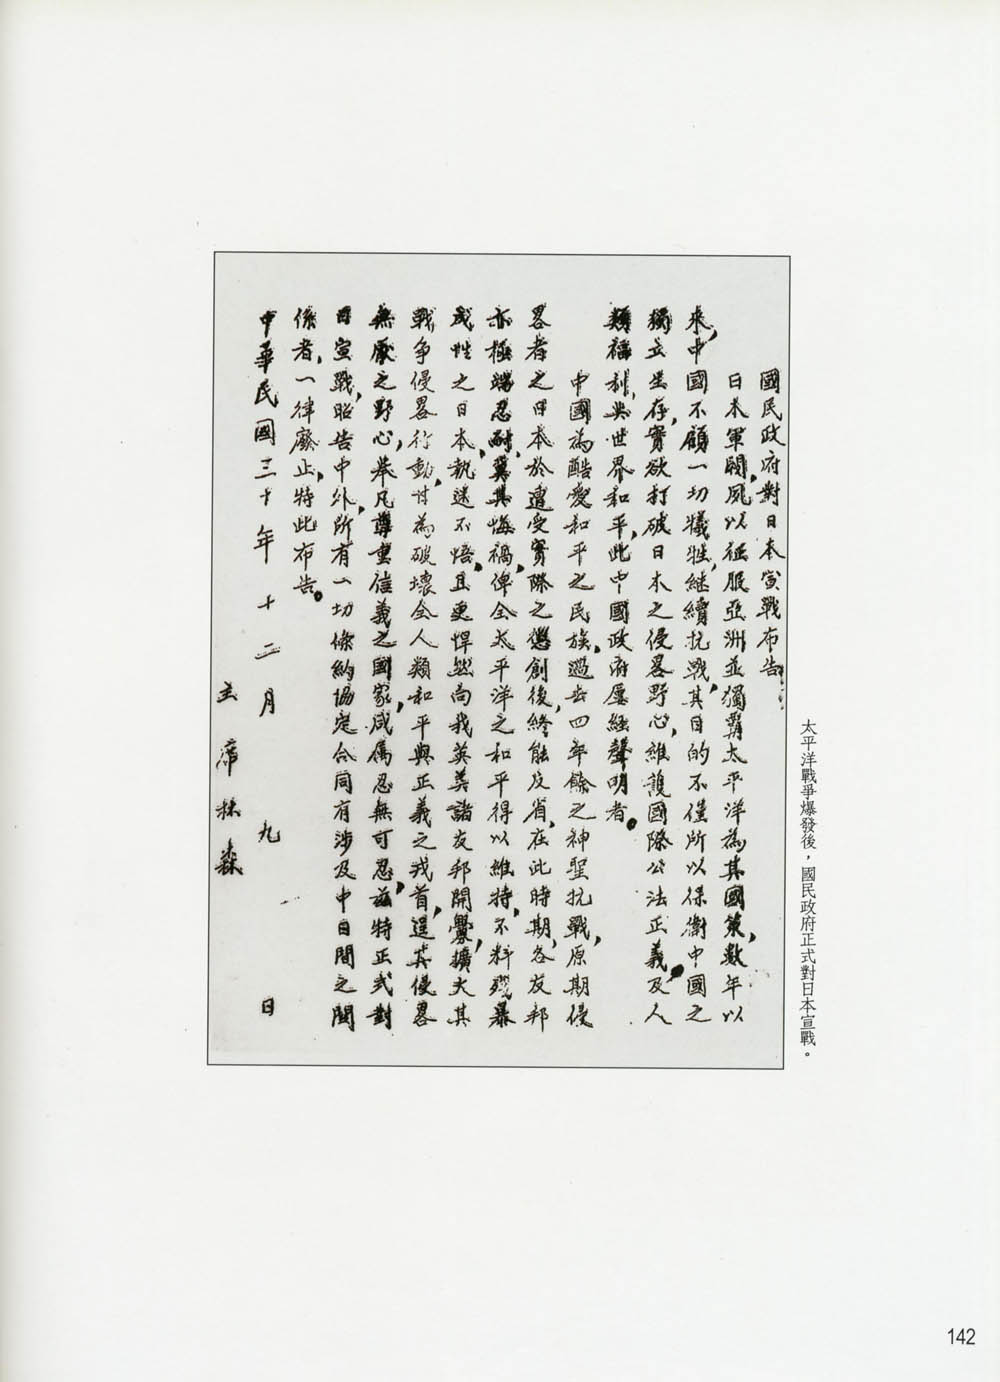 國民政府對日本宣戰布告
日本軍閥，夙以征服亞洲並獨霸太平洋為其國策，數年以
來，中國不顧一切犧牲，継續抗戰，其目的不僅所以保衛中國之
獨立生存，實欲打破日本之侵畧野心，維護國際公法正義及人
類福利與世界和平，此中國政府屢經聲明者。
中國為酷愛和平之民族，過去四年餘之神聖抗戰，原期侵
畧者之日本於遭受實際之懲創後，終能反省，在此時期，各友邦
亦極端忍耐，冀其悔禍，俾全太平洋之和平得以維持，不料殘暴
成性之日本，執迷不悟，且更悍然向我英美諸友邦開釁，擴大其
戰爭侵畧行動，甘為破壞全人類和平與正義之戎首，逞其侵畧
無厭之野心，舉凡尊重信義之國家，咸屬忍無可忍，茲特正式對
日宣戰，昭告中外，所有一切條約協定合同有涉及中日間之關
係者，一律廢止，特此布告。
中華民國三十年十二月九日
主席林森
太平洋戰爭爆發後，國民政府正式對日本宣戰。
142